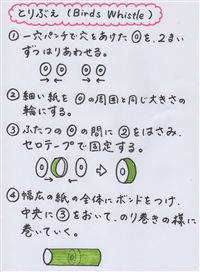 とりぶえ (Birds Whistle)
① 一穴パンチで穴をあけた◎を、2まい
ずつはりあわせる。
② 細い紙を◎の周囲と同じ大きさの
輪にする。
③ ふたつの◎の間に②をはさみ、
セロテープで固定する。
④ 幅広の紙の全体にボンドをつけ、
中央に③をおいて、のり巻きの様に
巻いていく。